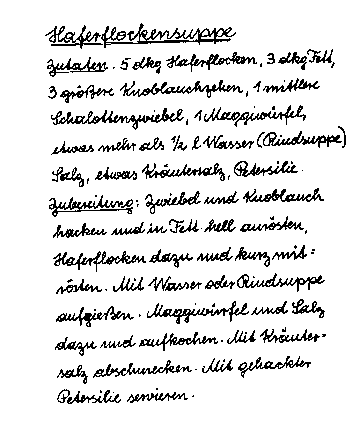 Haferflockensuppe
Zutaten. 5 dkg Haferflocken, 3 dkg Fett,
3 größere Knoblauchzehen, 1 mittlere
Schalottenzwiebel, 1 Maggiwürfel,
etwas mehr als 1/2 l Wasser (Rindsuppe)
Salz, etwas Kräutersalz, Petersilie.
Zubereitung: Zwiebel und Knoblauch
hacken und in Fett hell anrösten,
Haferflocken dazu und kurz mit=
rösten. Mit Wasser oder Rindsuppe
aufgießen. Maggiwürfel und Salz
dazu und aufkochen. Mit Kräuter-
salz abschmecken. Mit gehackter
Petersilie servieren.